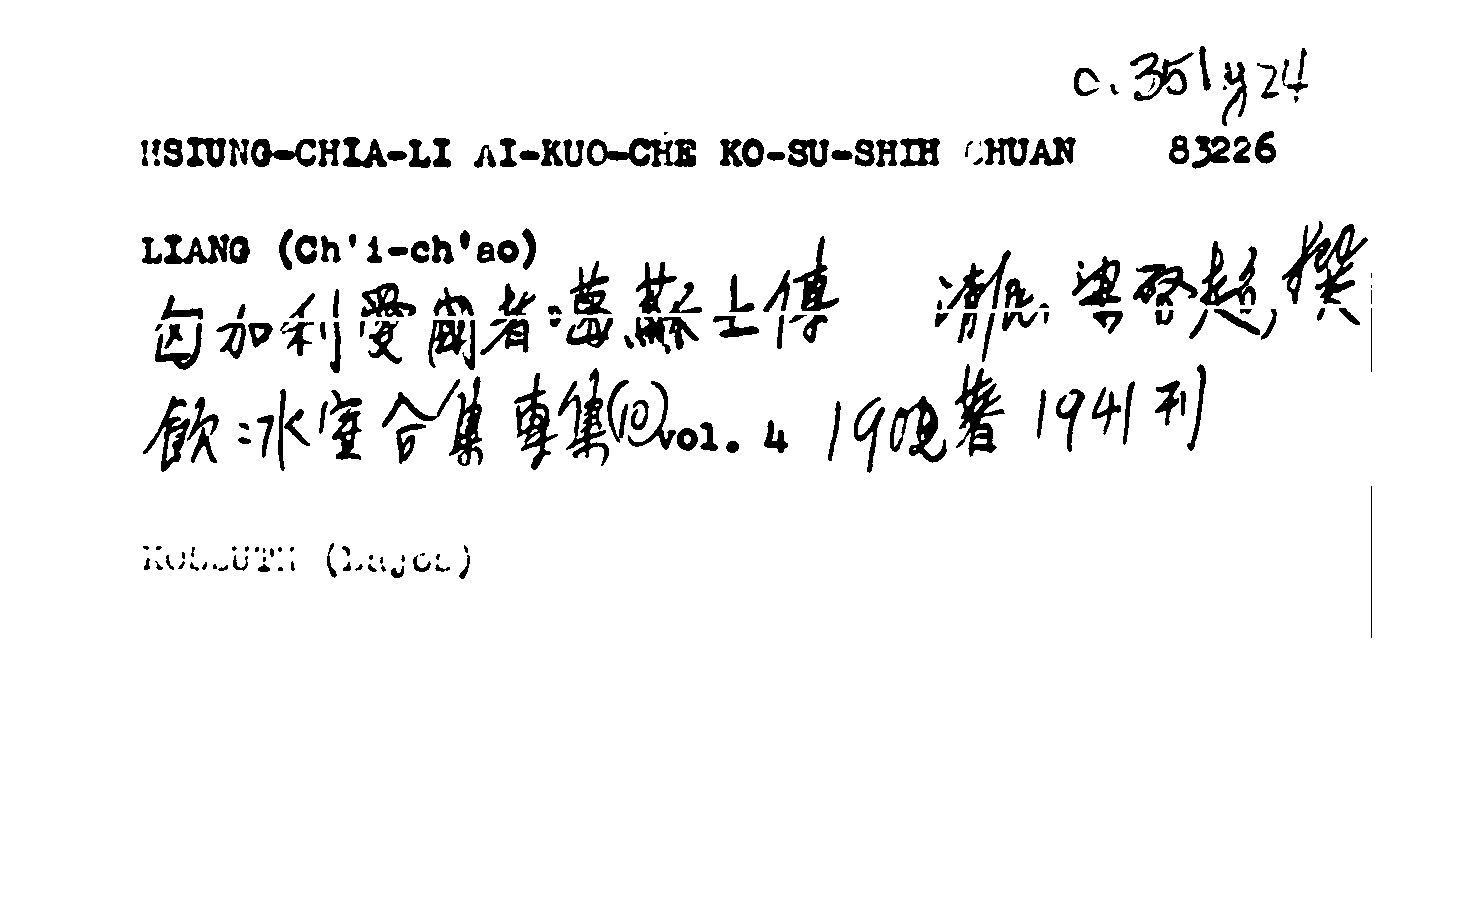 c.351y24
HSIUNG-CHIA-LI AI-KUO-CHE KO-SU-SHIH CHUAN 83226
LIANG (Ch'i-ch'ao)
匈加利愛國者噶蘇士傳 清民 梁啓超撰
飲冰室合集專集(10)vol. 4 1902著 1941刊
KOSSUTH (Lajos)